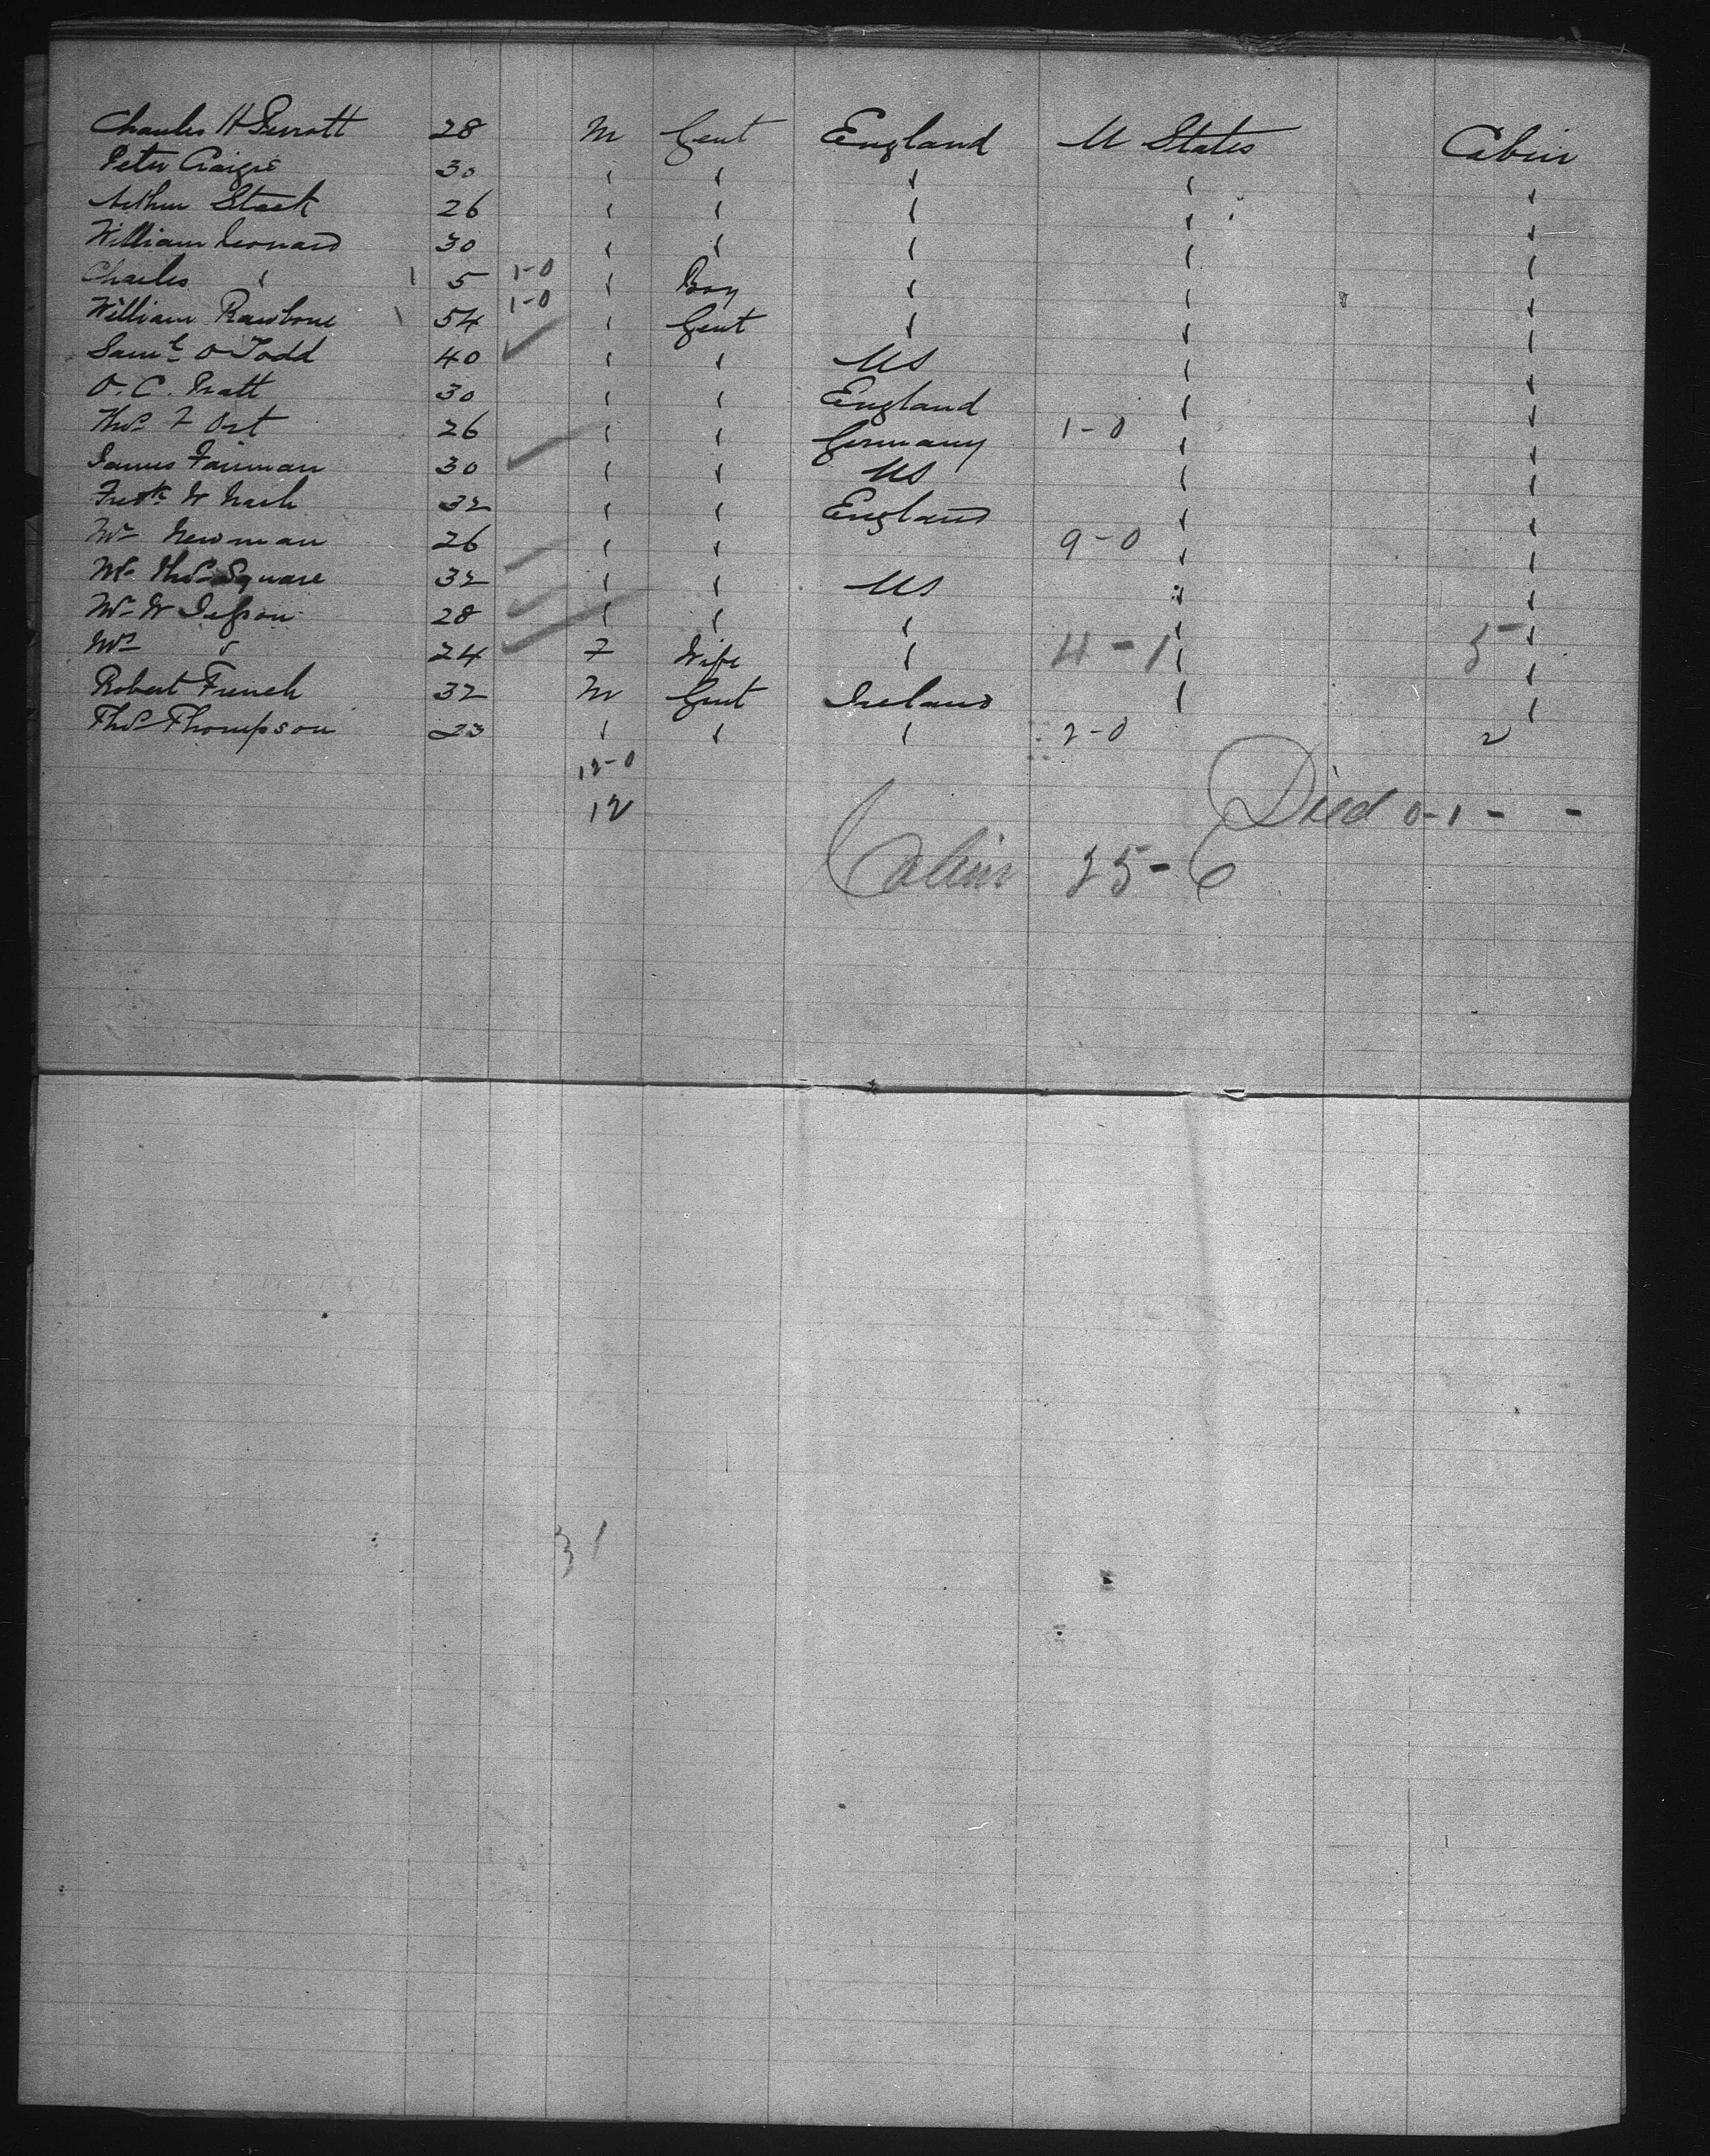 Charles H Perrott 28 M Gent England U States Cabin
Peter Craigie 30 " " " " "
Arthur Stack 26 " " " " "
William Leonard 30 " " " " "
Charles " 5 1-0 " Boy " " "
William Rawbone 54 1-0 " Gent " " "
Saml O Todd 40 ✓ " " US " "
O. C. Pratt 30 " " England " "
Thos F Ost 26 " " Germany 1-0 " "
James Fairman 30 ✓ " " US " "
Fredk W Nash 32 " " England " "
Mr Newman 26 " " 9-0 " "
Mr Thos Square 32 " " US " "
Mr W Jefson 28 " " " " "
Mrs " 24 F Wife " 4-1 " 5 "
Robert French 32 M Gent Ireland " "
Thos Thompson 23 " " " 2-0 2
12-0
12 Died 0-1 - -
Cabin 25-6
31